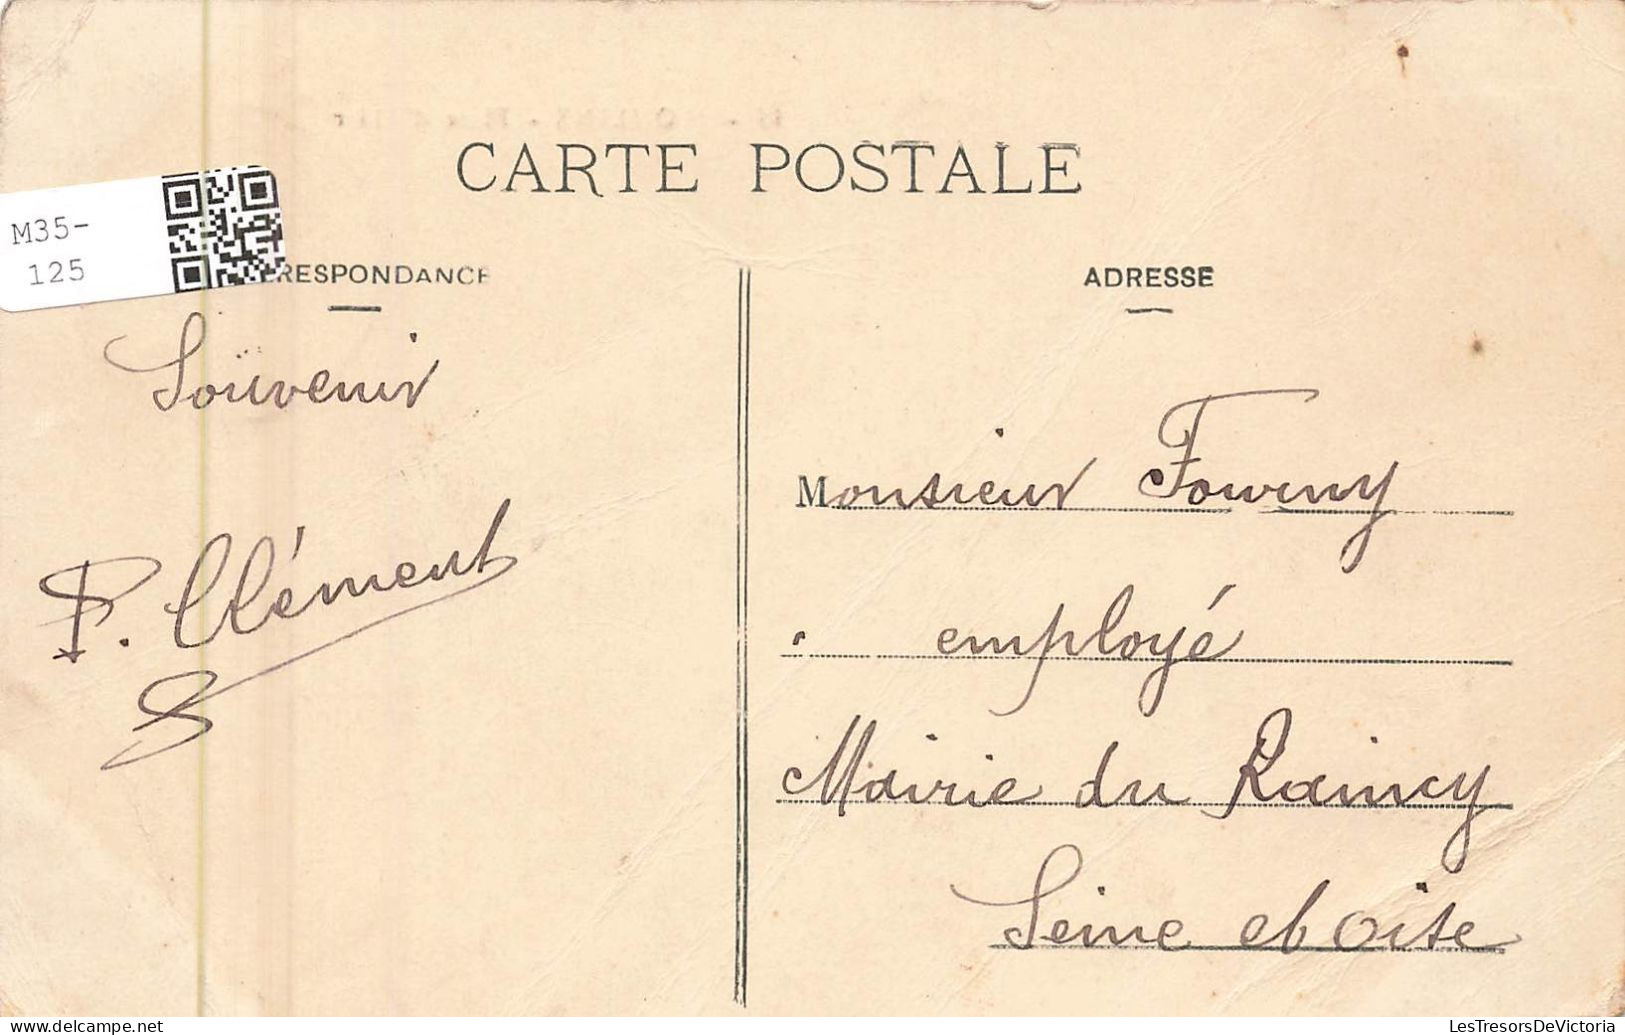 CARTE POSTALE
M35-
125
RESPONDANCE
ADRESSE
Souvenir
P. Clément
Monsieur Fourny
employé
Mairie du Raincy
Seine et Oise
LesTresorsDeVictoria
www.delcampe.net